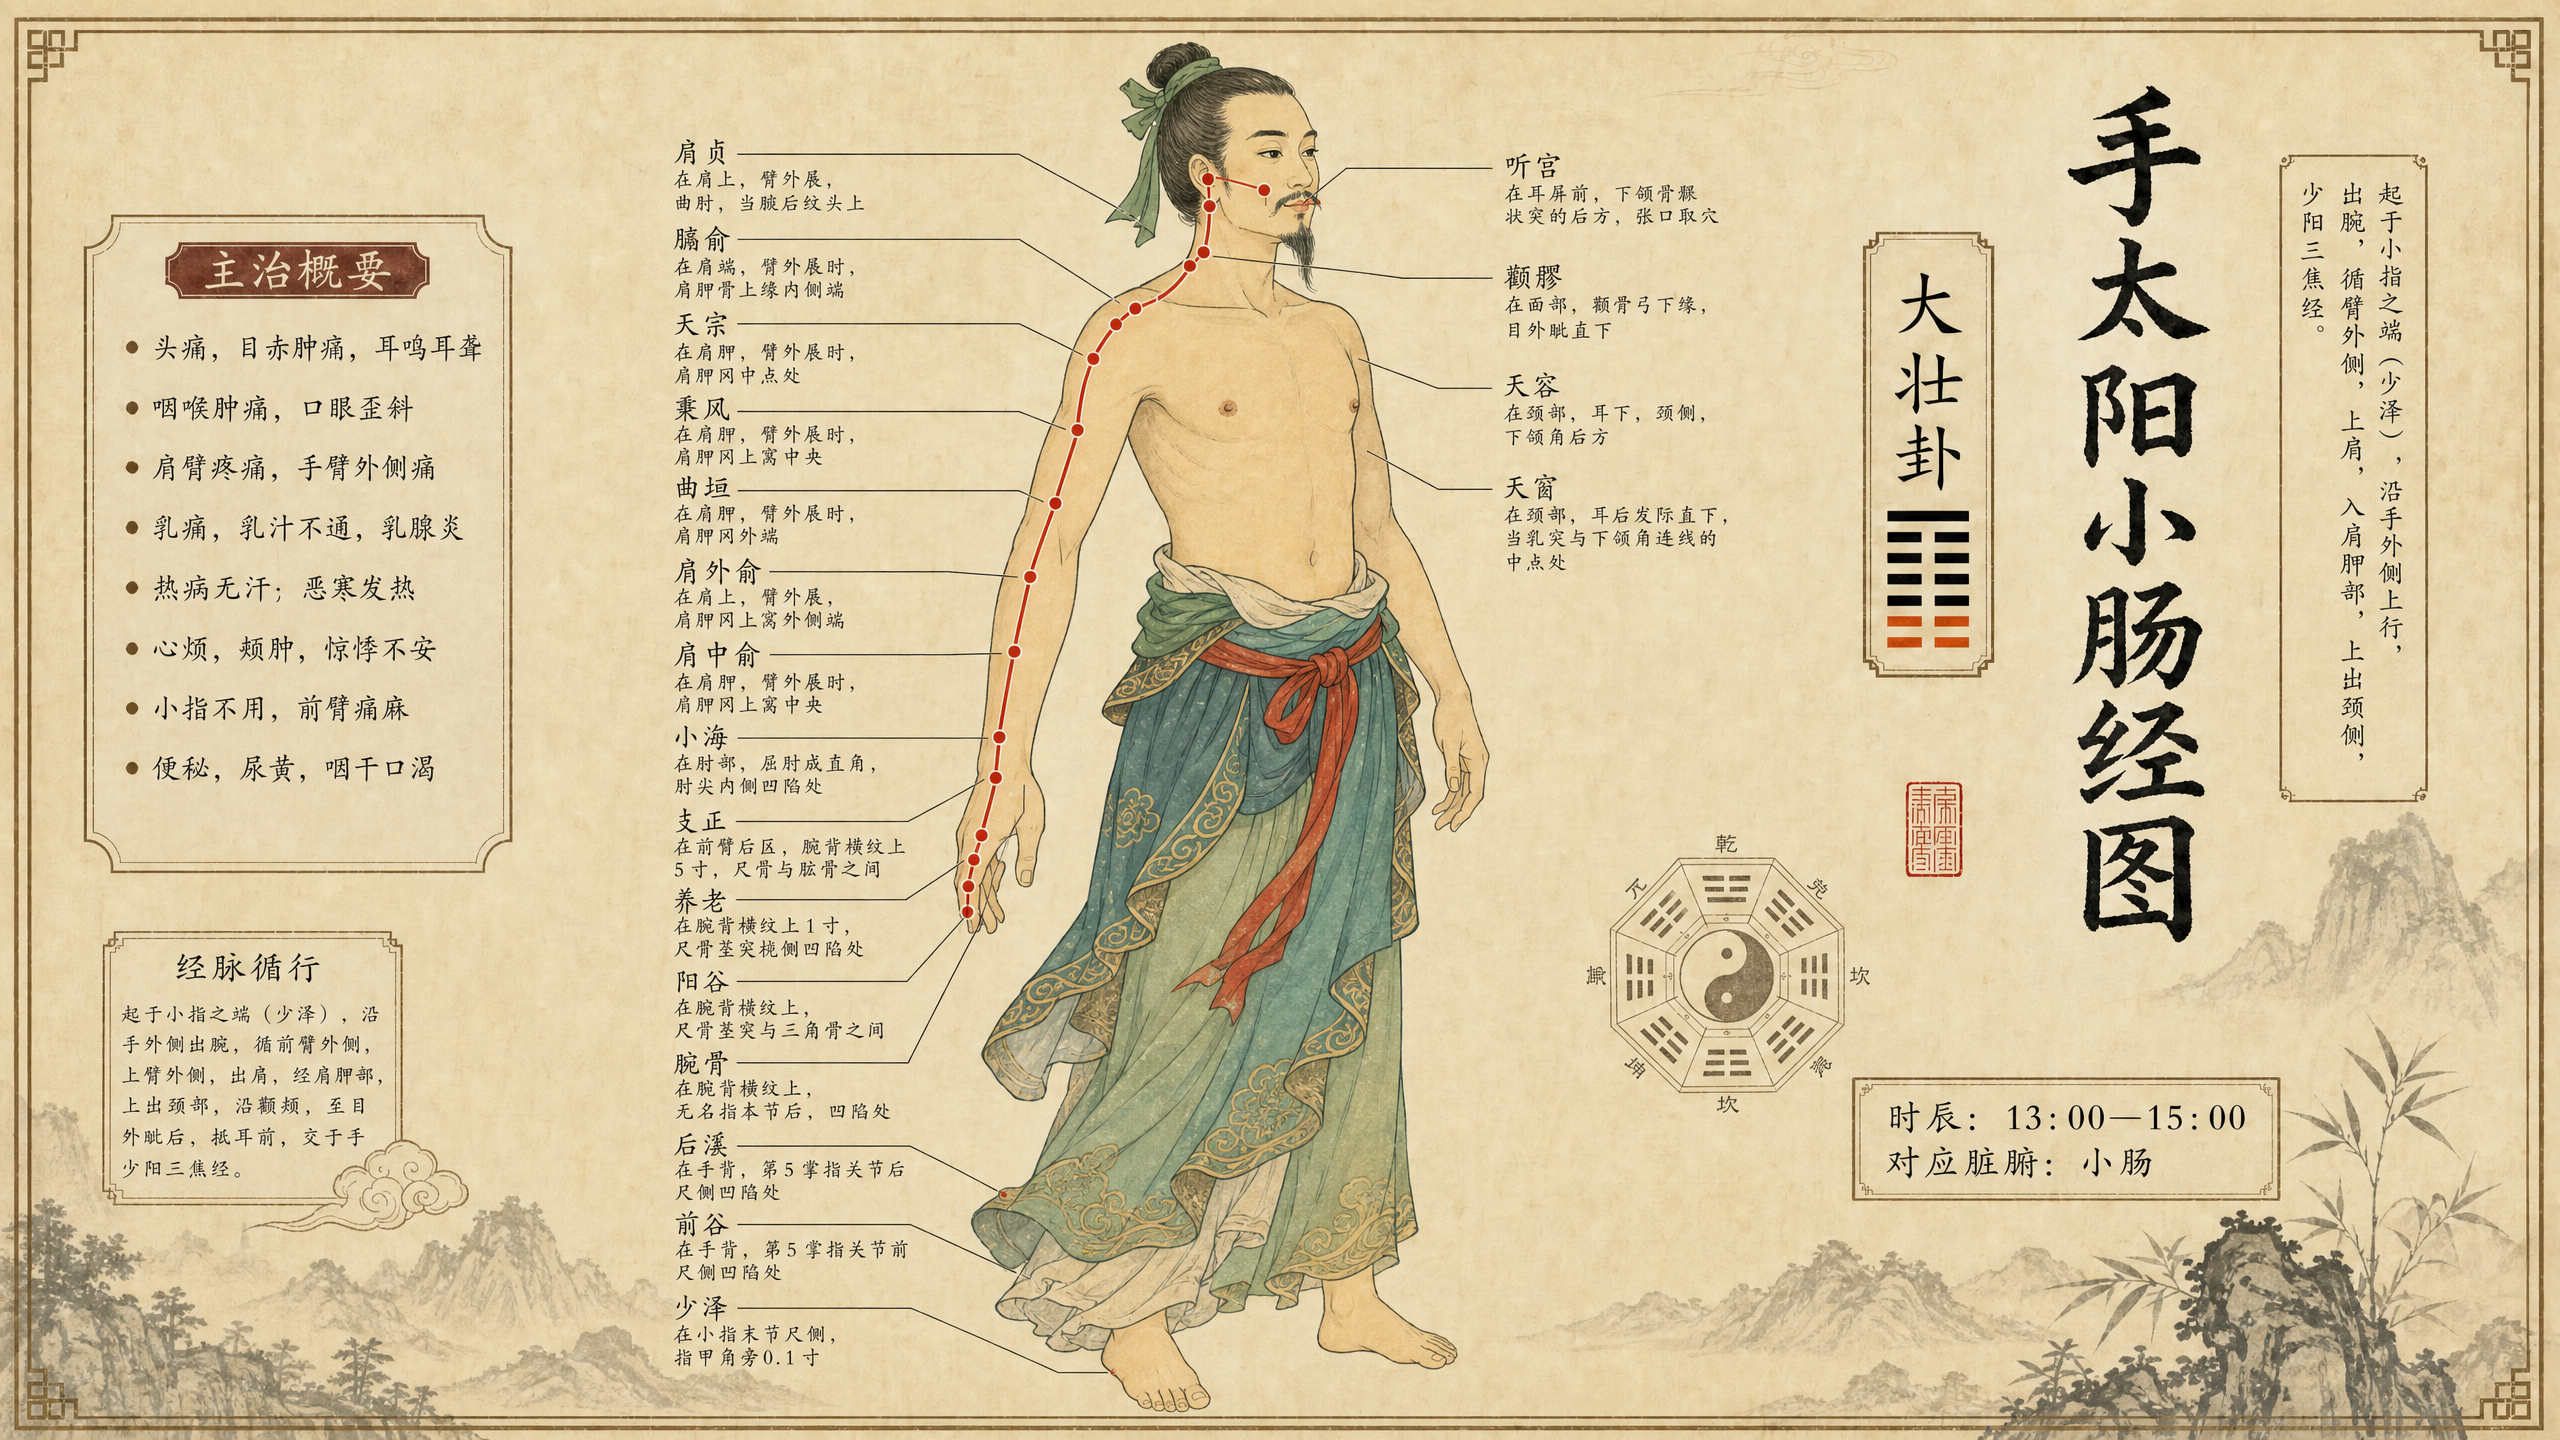 手太阳小肠经图
起于小指之端（少泽），沿手外侧上行，
出腕，循臂外侧，上肩，入肩胛部，上出颈侧，
少阳三焦经。
大壮卦
主治概要
头痛，目赤肿痛，耳鸣耳聋
咽喉肿痛，口眼歪斜
肩臂疼痛，手臂外侧痛
乳痛，乳汁不通，乳腺炎
热病无汗；恶寒发热
心烦，颊肿，惊悸不安
小指不用，前臂痛麻
便秘，尿黄，咽干口渴
经脉循行
起于小指之端（少泽），沿
手外侧出腕，循前臂外侧，
上臂外侧，出肩，经肩胛部，
上出颈部，沿颧颊，至目
外眦后，抵耳前，交于手
少阳三焦经。
肩贞
在肩上，臂外展，
曲肘，当腋后纹头上
臑俞
在肩端，臂外展时，
肩胛骨上缘内侧端
天宗
在肩胛，臂外展时，
肩胛冈中点处
秉风
在肩胛，臂外展时，
肩胛冈上窝中央
曲垣
在肩胛，臂外展时，
肩胛冈外端
肩外俞
在肩上，臂外展，
肩胛冈上窝外侧端
肩中俞
在肩胛，臂外展时，
肩胛冈上窝中央
小海
在肘部，屈肘成直角，
肘尖内侧凹陷处
支正
在前臂后区，腕背横纹上
5寸，尺骨与肱骨之间
养老
在腕背横纹上1寸，
尺骨茎突桡侧凹陷处
阳谷
在腕背横纹上，
尺骨茎突与三角骨之间
腕骨
在腕背横纹上，
无名指本节后，凹陷处
后溪
在手背，第5掌指关节后
尺侧凹陷处
前谷
在手背，第5掌指关节前
尺侧凹陷处
少泽
在小指末节尺侧，
指甲角旁0.1寸
听宫
在耳屏前，下颌骨髁
状突的后方，张口取穴
颧髎
在面部，颧骨弓下缘，
目外眦直下
天容
在颈部，耳下，颈侧，
下颌角后方
天窗
在颈部，耳后发际直下，
当乳突与下颌角连线的
中点处
乾
兑
坎
坎
坤
兀
时辰：13:00—15:00
对应脏腑：小肠